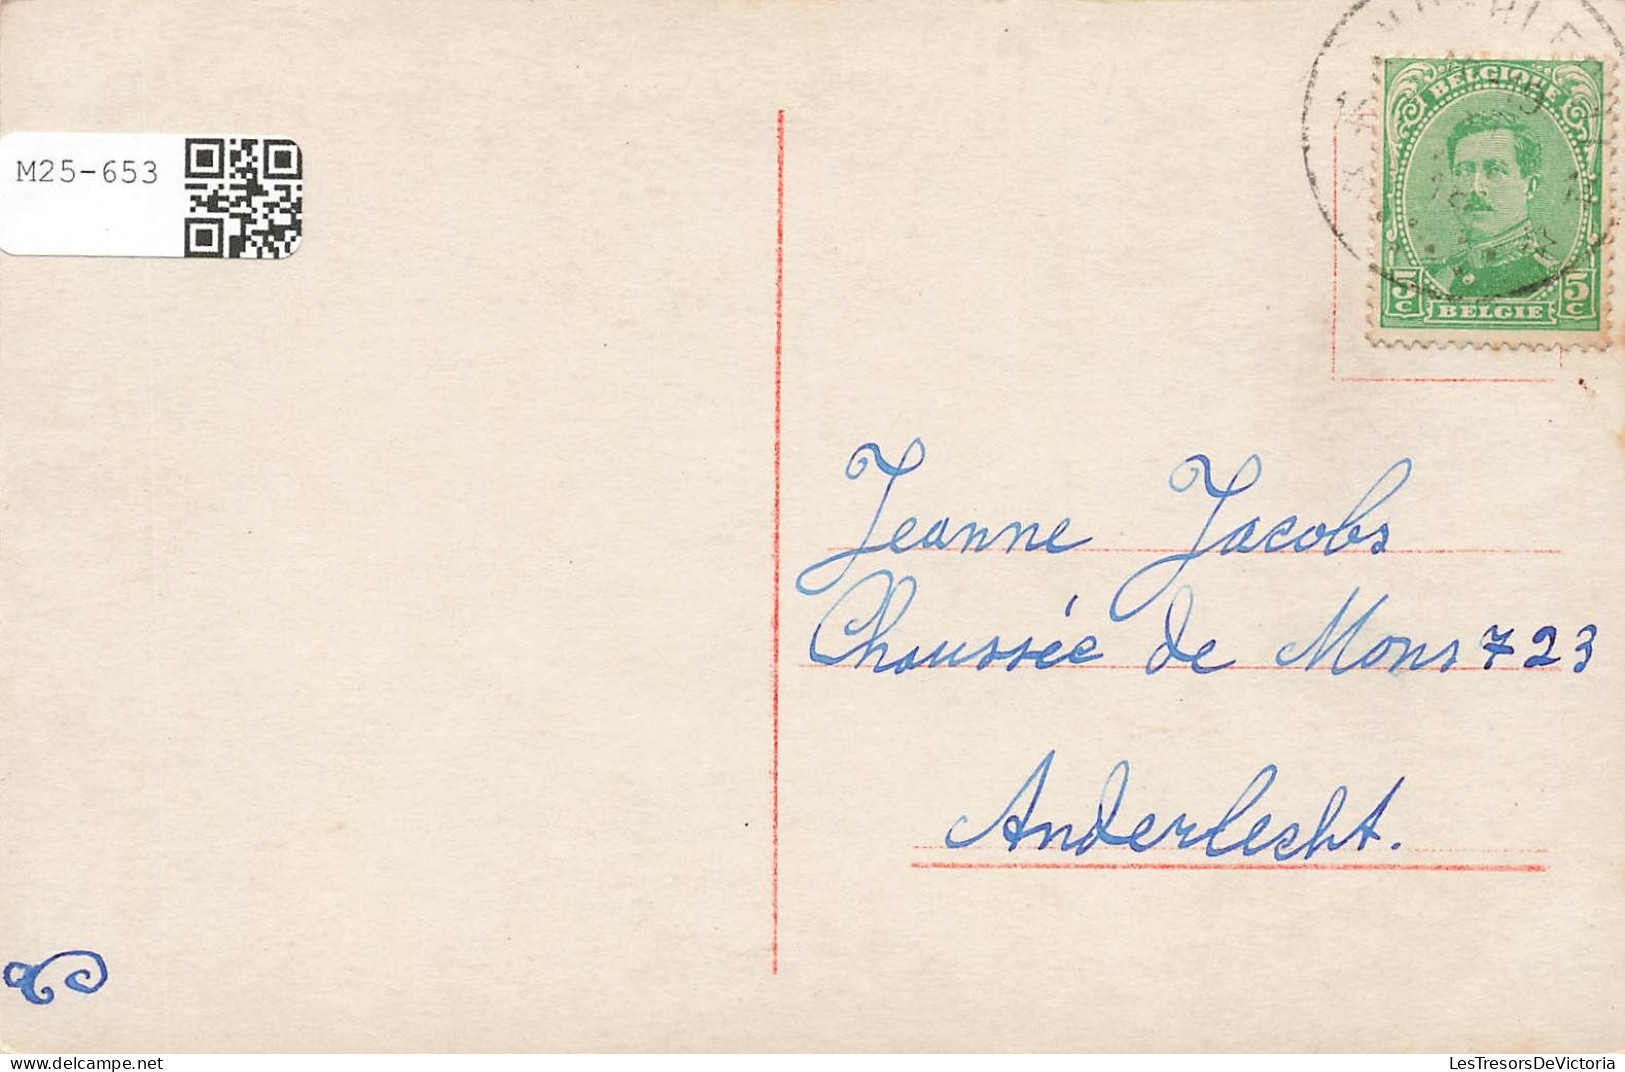 M25-653
BELGIQUE
5c 5c
BELGIE
Jeanne Jacobs
Chaussée de Mons 723
Anderlecht.
LesTresorsDeVictoria